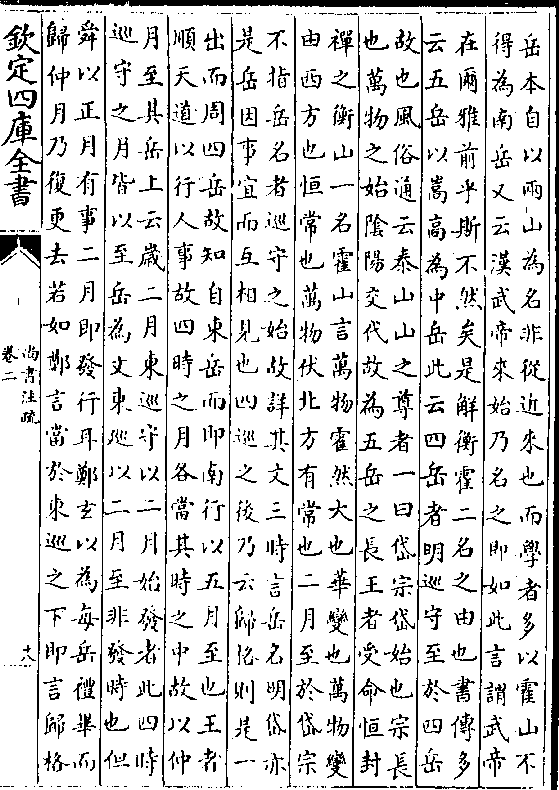 岳本自以兩山為名非從近來也而學者多以霍山不
得為南岳又云漢武帝來始乃名之即如此言謂武帝
在爾雅前乎斯不然矣是解衡霍二名之由也書傳多
云五岳以嵩高為中岳此云四岳者明巡守至於四岳
故也風俗通云泰山山之尊者一曰岱宗岱始也宗長
也萬物之始陰陽交代故為五岳之長王者受命恒封
禪之衡山一名霍山言萬物霍然大也華變也萬物變
由西方也恒常也萬物伏北方有常也二月至於岱宗
不指岳名者巡守之始故詳其文三時言岳名明岱亦
是岳因事宜而互相見也四巡之後乃云歸格則是一
出而周四岳故知自東岳而即南行以五月至也王者
順天道以行人事故四時之月各當其時之中故以仲
月至其岳上云歲二月東巡守以二月始發者此四時
巡守之月皆以至岳為文東巡以二月至非發時也但
舜以正月有事二月即發行耳鄭玄以為每岳禮畢而
歸仲月乃復更去若如鄭言當於東巡之下即言歸格
欽定四庫全書
尚書注疏
卷二
十八